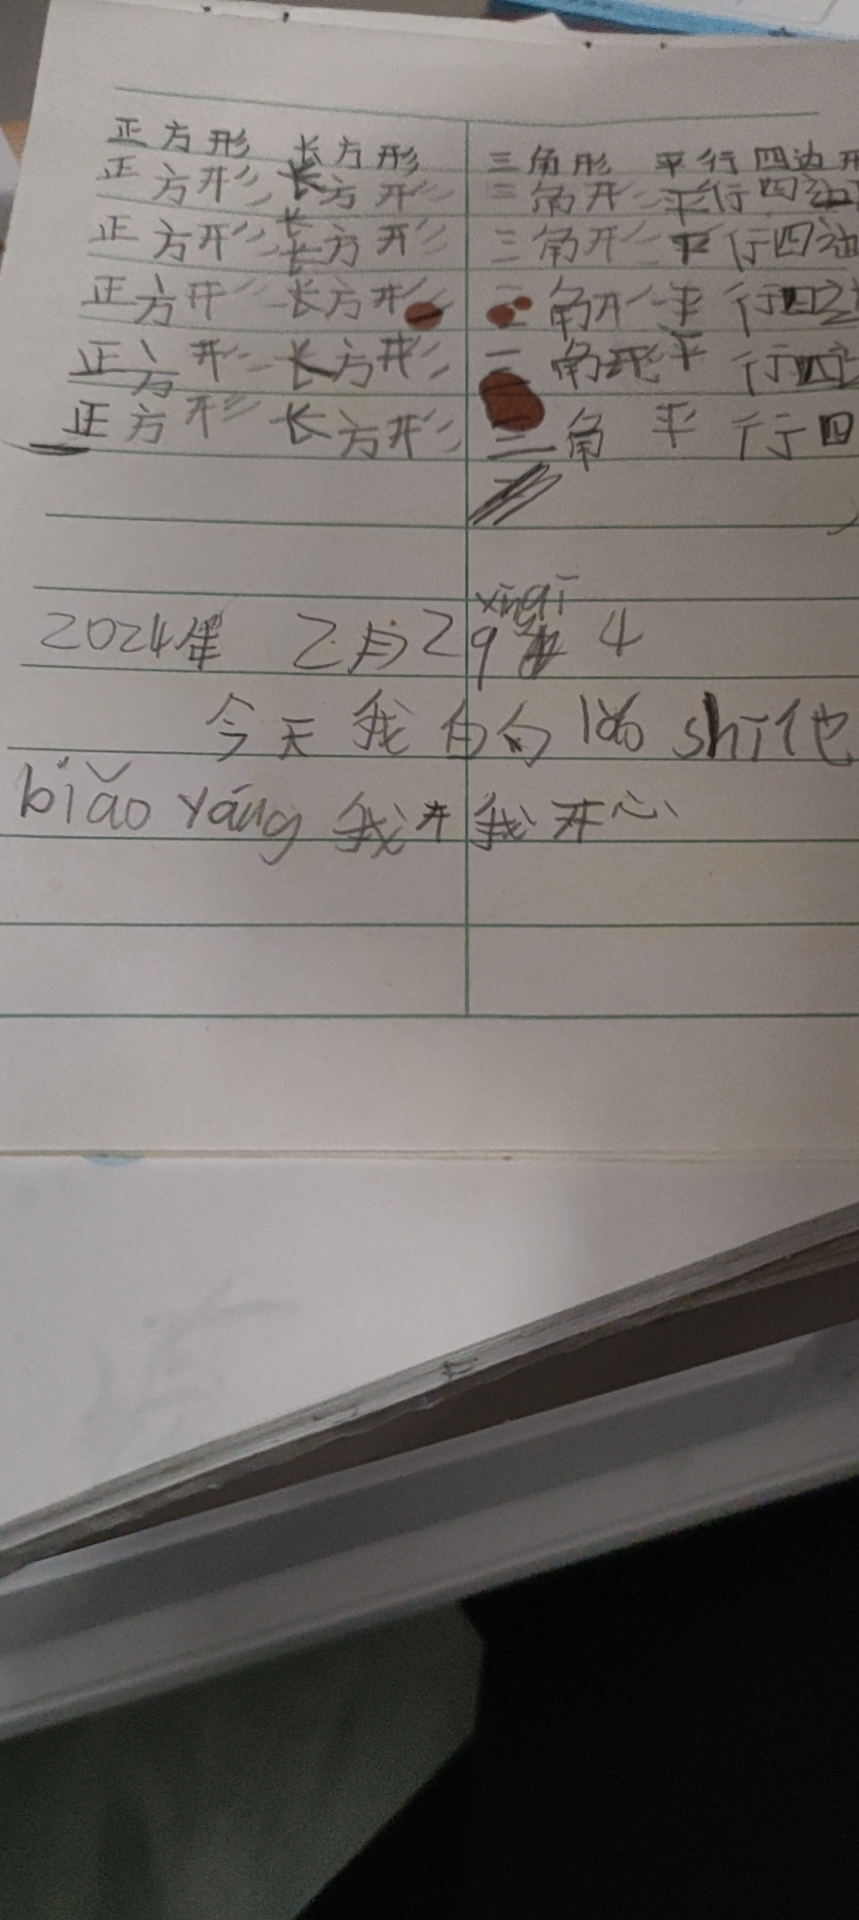 正方形 长方形 三角形 平行四边形
正方形 长方形 三角形 平行四边
正方形 长方形 三角形 平行四边
正方形 长方形 三角形 平行四边
正方形 长方形 三角形 平行四边
正方形 长方形 三角 平行四
xīng qī
2024年 2月29 4
今天我的 lǎo shī 他
biǎo yáng 我 我开心